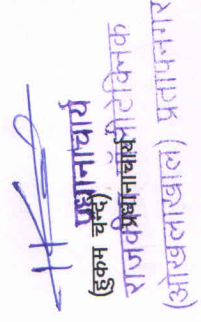 प्रधानाचार्य
(हुकम चन्द)
प्रधानाचार्य
राजकीय पॉलीटेक्निक
(ओखलाखाल) प्रतापनगर